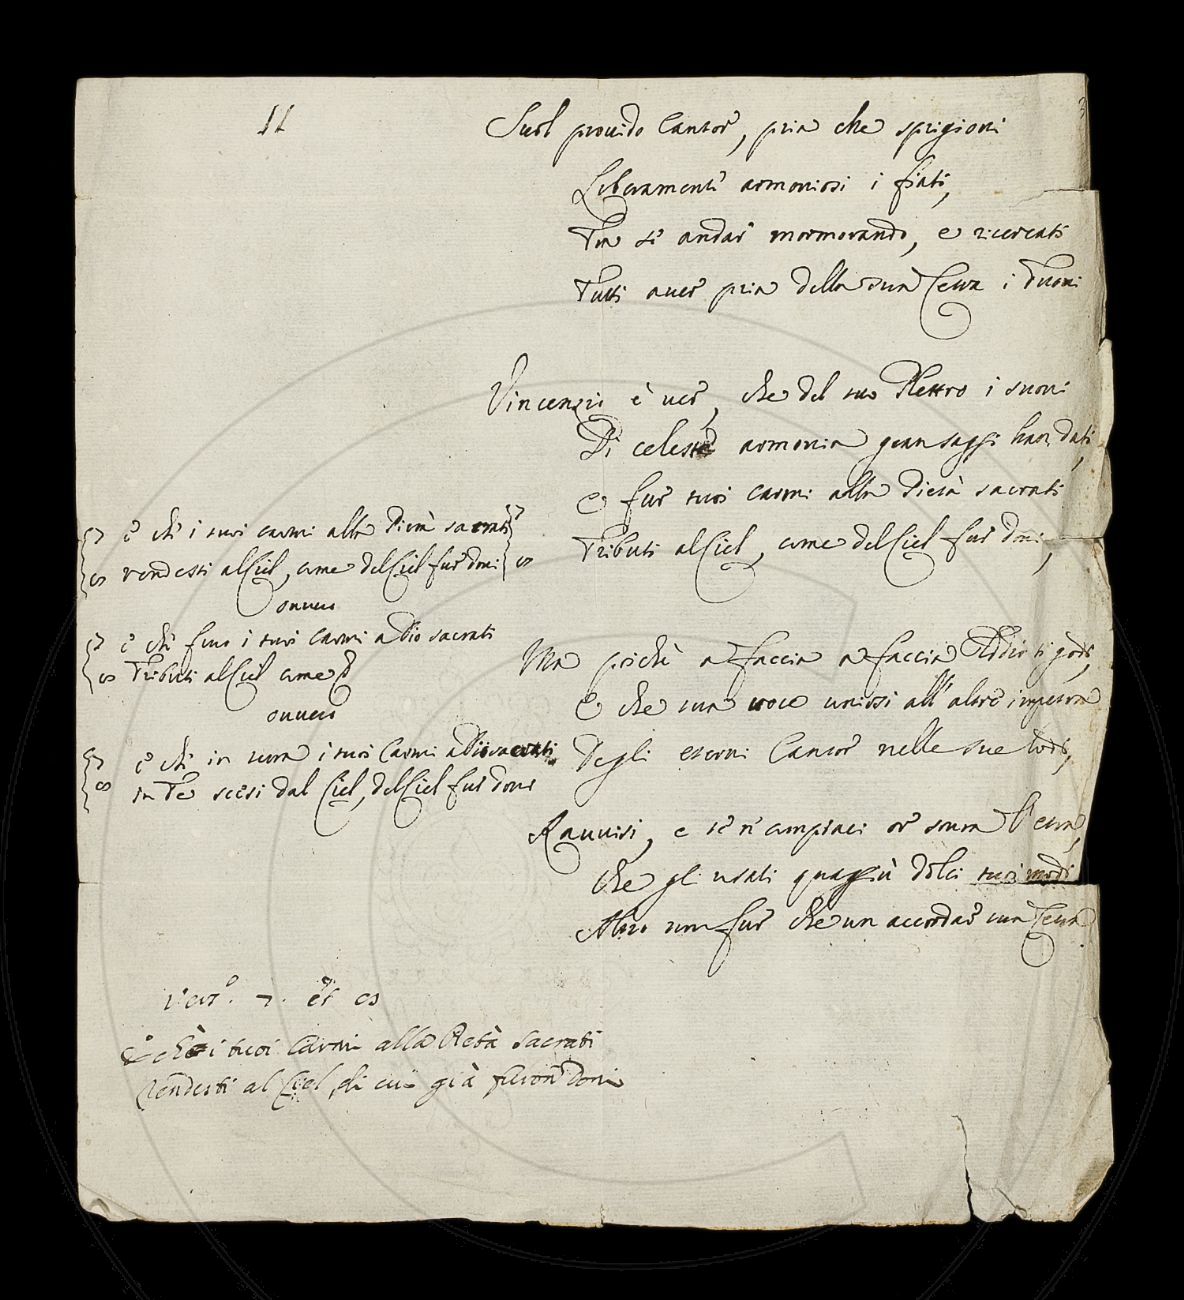 11
Suol prouido Cantor, pria che sprigioni
Liberamente armoniosi i fiati,
Fra se andar mormorando, e ricercati
Tutti auer pria della sua Cetra i Tuoni
Vincenzio è uer, che del tuo Plettro i suoni
Di celeste armonia gran saggi han dati,
E fur tuoi carmi alla Pietà sacrati
Tributi al Ciel, come del Ciel fur doni,
Ma poichè a faccia a faccia Iddio ti godi,
E che tua uoce unirsi all'altre impetra
Degli eterni Cantor nelle sue lodi,
Rauuisi, e se ti compiaci or soura l'etra,
Che gli usati quaggiù dolci tuoi modi
Altro non fur che un accordar tua Cetra.
7 e che i tuoi carmi alla Pietà sacrati 7
8 rendesti al Ciel, come del Ciel fur doni 8
ouuero
7 e che furo i tuoi Carmi a Dio sacrati
8 Tributi al Ciel come
ouuero
7 e che in terra i tuoi Carmi a Dio sacrati
8 in Te scesi dal Ciel, del Ciel fur doni
Vers.º 7. et 8
E che i tuoi Carmi alla Pietà sacrati
Rendesti al Ciel, di cui già furon doni